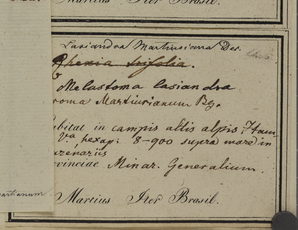 Martius Iter Brasil.
Lasiandra Martiusiana Dec.
Rhexia trifolia.
Melastoma lasiandra
roma Martiusianum Rg.
bitat in campis altis alpis Itam
Va hexap: 8-900 supra mare in
arenariis
vinciae Minar. Generalium.
Martius Iter Brasil.
artianum